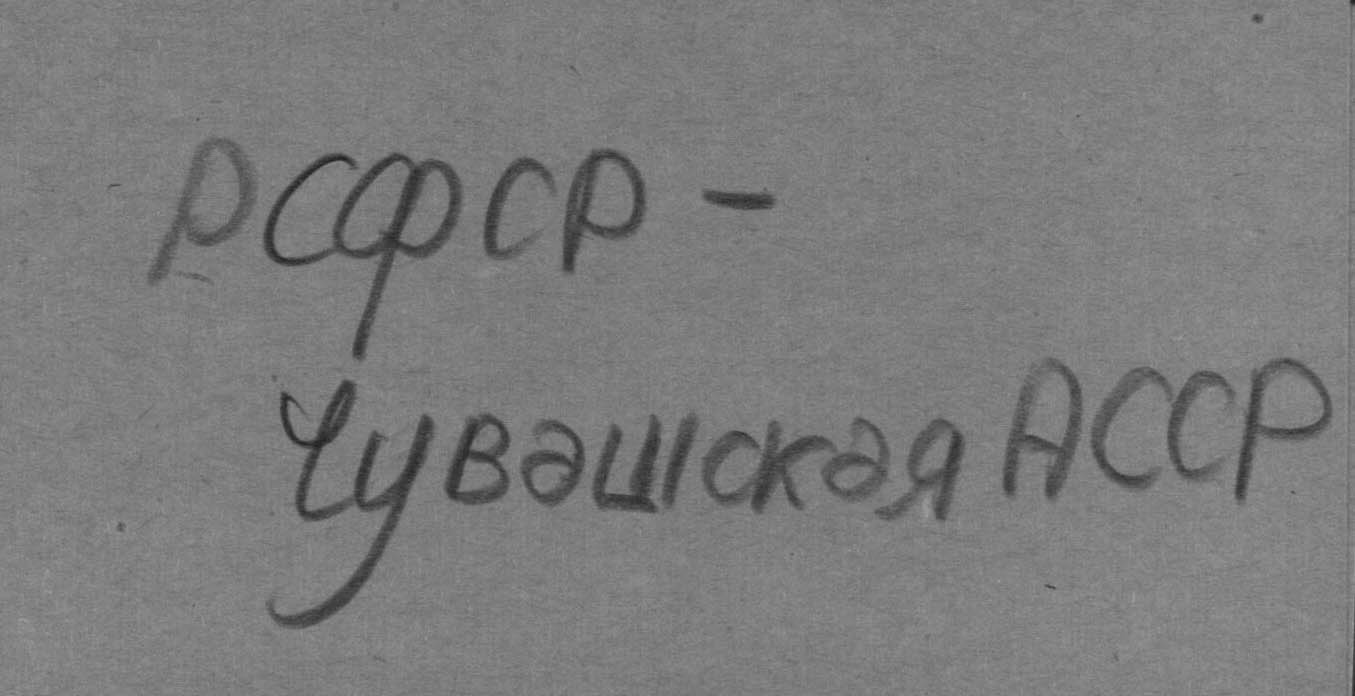 РСФСР -
Чувашская АССР